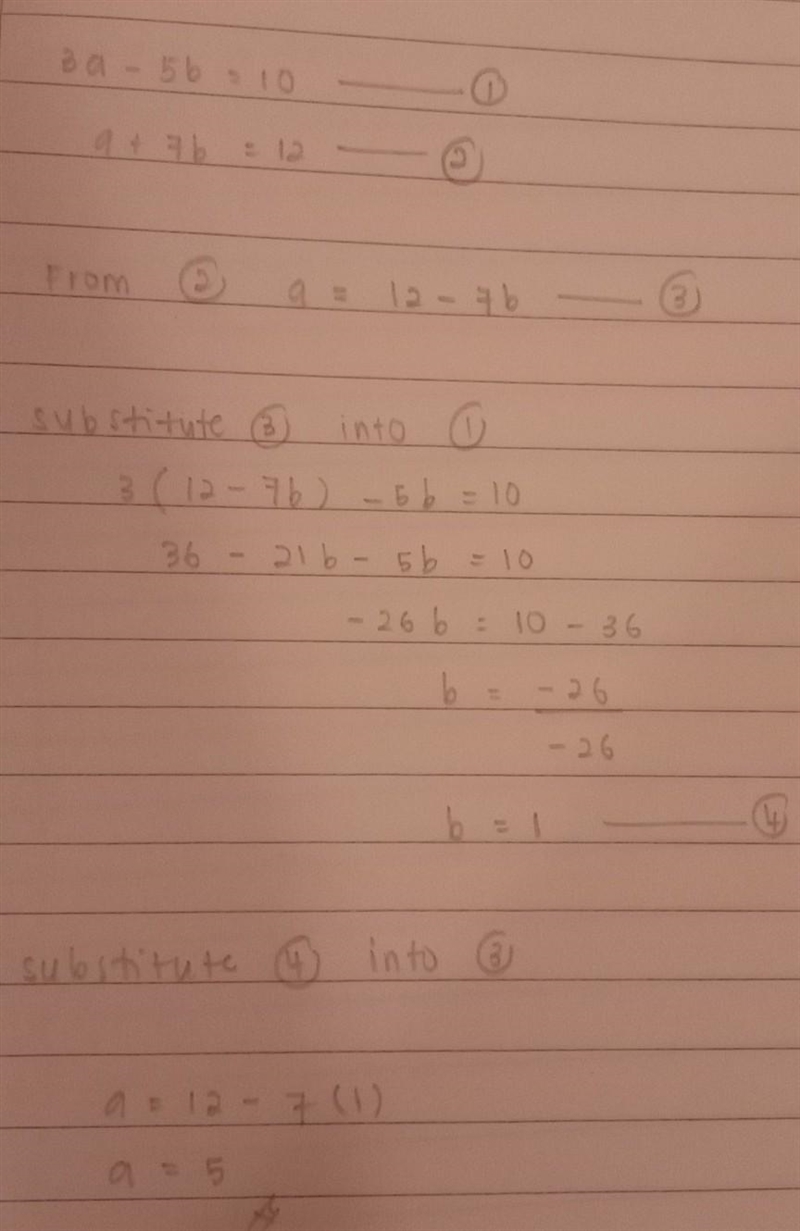 3a - 5b = 10 —— ①
a + 7b = 12 —— ②
From ② a = 12 - 7b —— ③
substitute ③ into ①
3(12 - 7b) - 5b = 10
36 - 21b - 5b = 10
-26b = 10 - 36
b = -26
-26
b = 1 —— ④
substitute ④ into ③
a = 12 - 7(1)
a = 5